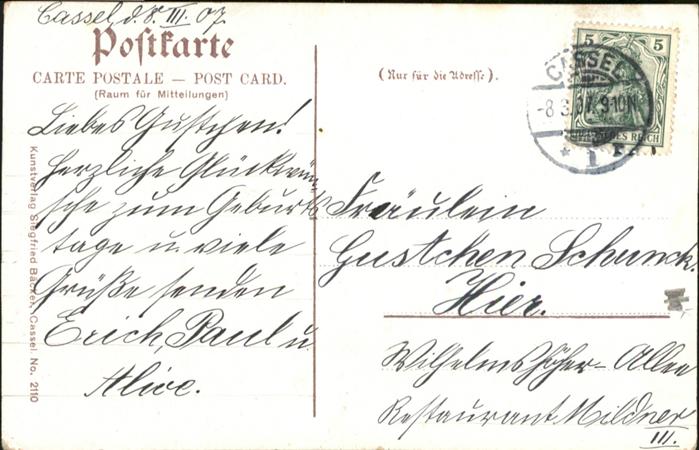 Cassel, d. 8. III. 07
Postkarte
CARTE POSTALE — POST CARD.
(Raum für Mitteilungen)
Liebes Gustchen!
Herzliche Glückwün-
sche zum Geburts
tage u. viele
Grüße senden
Erich, Paul u
Alice.
Kunstverlag Siegfried Bäcker, Cassel. No. 2110
(Nur für die Adresse).
5 5
CASSEL
-8.3.07. 9-10N
* 1
REICH
Fräulein
Gustchen Schunck.
Hier.
Wilhelmshöher-Allee
Restaurant Mildner
III.